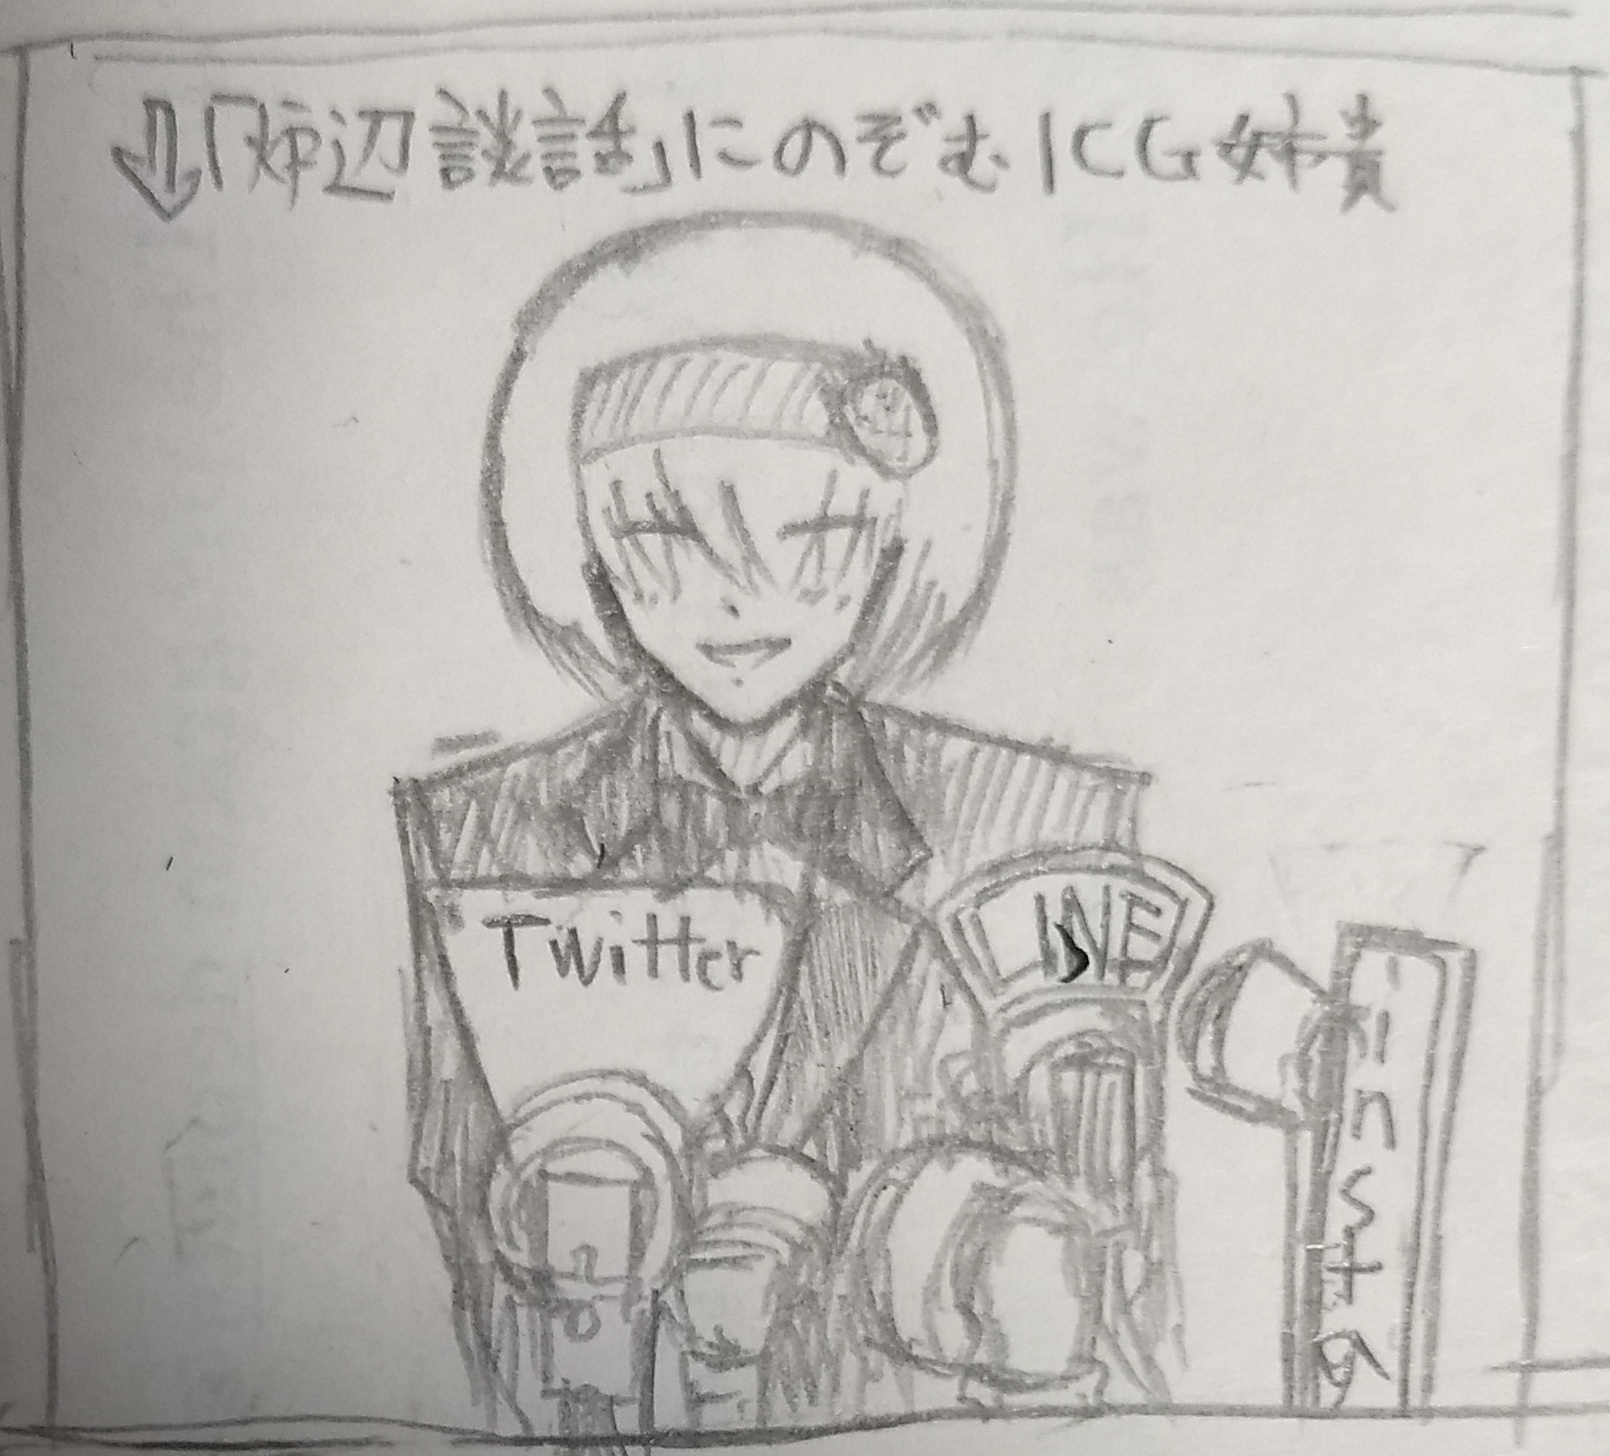 ⇩「炉辺談話」にのぞむICG姉貴
Twitter
LINE
insta